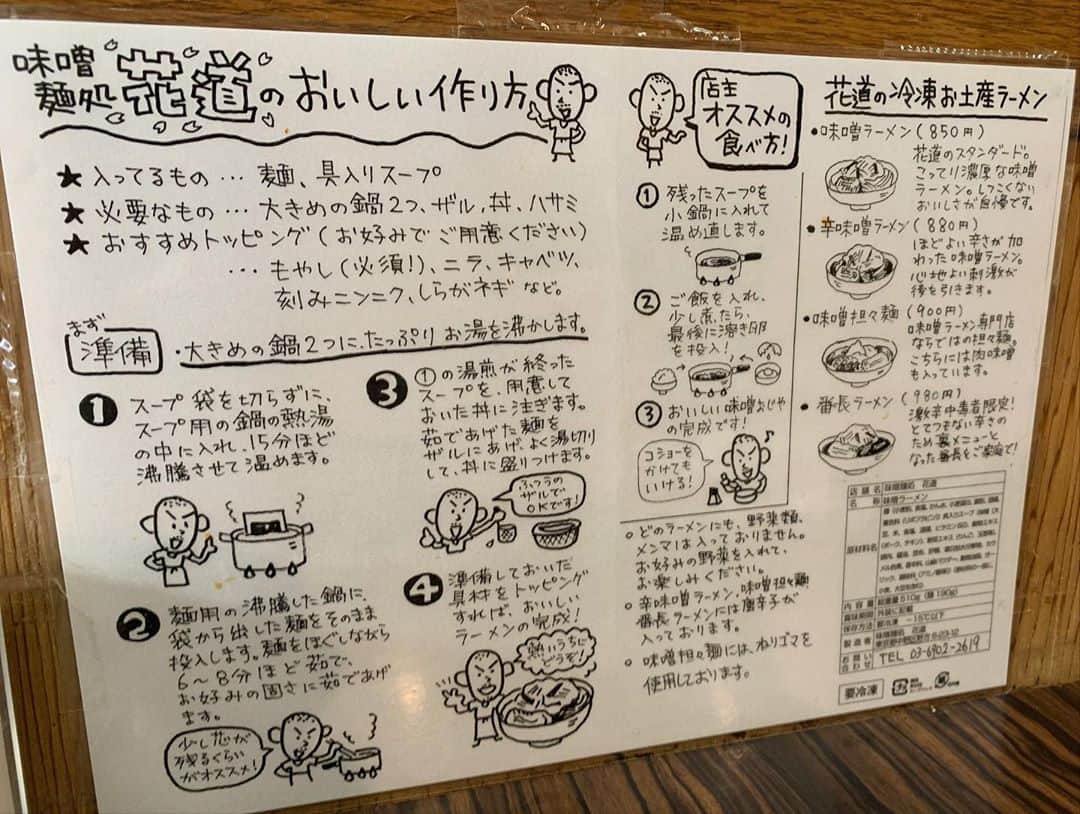 味噌
麺処 花道のおいしい作り方
★ 入ってるもの … 麺、具入りスープ
★ 必要なもの … 大きめの鍋2つ、ザル、丼、ハサミ
★ おすすめトッピング(お好みでご用意ください)
… もやし(必須!)、ニラ、キャベツ、
刻みニンニク、しらがネギ など。
まず
準備
・大きめの鍋2つに、たっぷりお湯を沸かします。
1 スープ袋を切らずに、
スープ用の鍋の熱湯
の中に入れ、15分ほど
沸騰させて温めます。
2 麺用の沸騰した鍋に、
袋から出した麺をそのまま
投入します。麺をほぐしながら
6〜8分ほど茹で、
お好みの固さに茹であげ
ます。
少し芯が
残るくらい
がオススメ!
3 ①の湯煎が終った
スープを、用意して
おいた丼に注ぎます。
茹であげた麺を
ザルにあげ、よく湯切り
して、丼に盛りつけます。
ふつうの
ザルで
OKです!
4 準備しておいた
具材をトッピング
すれば、おいしい
ラーメンの完成!
熱いうちに
どうぞ!
店主
オススメの
食べ方!
① 残ったスープを
小鍋に入れて
温め直します。
② ご飯を入れ、
少し煮たら、
最後に溶き卵
を投入!
③ おいしい味噌おじや
の完成です!
コショーを
かけても
いける!
○ どのラーメンにも、野菜類、
メンマは入っておりません。
お好みの野菜を入れて、
お楽しみください。
○ 辛味噌ラーメン、味噌担々麺、
番長ラーメンには唐辛子が
入っております。
○ 味噌担々麺には、ねりゴマを
使用しております。
花道の冷凍お土産ラーメン
● 味噌ラーメン(850円)
花道のスタンダード。
こってり濃厚な味噌
ラーメン。しつこくない
おいしさが自慢です。
● 辛味噌ラーメン(880円)
ほどよい辛さが加
わった味噌ラーメン。
心地よい刺激が
後を引きます。
● 味噌担々麺(900円)
味噌ラーメン専門店
ならではの担々麺。
こちらには肉味噌
も入っています。
● 番長ラーメン(980円)
激辛中毒者限定!
とてつもない辛さの
ため裏メニューと
なった番長をご家庭で!
店舗名 味噌麺処 花道
名称 味噌ラーメン
原材料名
内容量 総重量510g(麺190g)
賞味期限 外装に記載
保存方法 要冷凍 −15℃以下
製造者 味噌麺処 花道
お問い
合わせ TEL 03-6902-2619
要冷凍